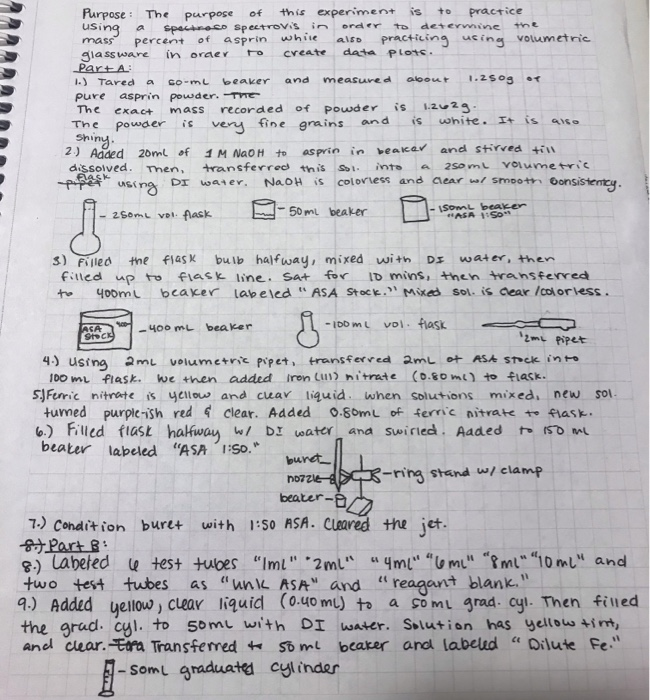 Purpose: The purpose of this experiment is to practice
using a spectroso spectrovis in order to determine the
mass percent of asprin while also practicing using volumetric
glassware in order to create data plots.
Part A:
1.) Tared a 50-mL beaker and measured about 1.250g of
pure asprin powder. The
The exact mass recorded of powder is 1.262g.
The powder is very fine grains and is white. It is also
shiny.
2.) Added 20mL of 1 M NaOH to asprin in beaker and stirred till
dissolved. Then, transferred this sol. into a 250mL volumetric
flask
pipet using DI water. NaOH is colorless and clear w/ smooth consistency.
- 250mL vol. flask
- 50ml beaker
- 150mL beaker
"ASA 1:50"
3) Filled the flask bulb halfway, mixed with DI water, then
filled up to flask line. Sat for 10 mins, then transferred
to 400mL beaker labeled "ASA Stock." Mixed sol. is clear/colorless.
ASA
Stock
400
- 400 mL beaker
- 100mL vol. flask
2mL pipet
4.) Using 2mL volumetric pipet, transferred 2mL of ASA stock into
100 mL flask. We then added iron (III) nitrate (0.80 mL) to flask.
5.) Ferric nitrate is yellow and clear liquid. When solutions mixed, new sol.
turned purple-ish red & clear. Added 0.80mL of ferric nitrate to flask.
6.) Filled flask halfway w/ DI water and swirled. Added to 150 mL
beaker labeled "ASA 1:50."
buret
nozzle
- ring stand w/ clamp
beaker
7.) Condition buret with 1:50 ASA. Cleared the jet.
8.) Part B:
8.) Labeled 6 test tubes "1mL" "2mL" "4mL" "6mL" "8mL" "10mL" and
two test tubes as "unk ASA" and "reagant blank."
9.) Added yellow, clear liquid (0.40mL) to a 50mL grad. cyl. Then filled
the grad. cyl. to 50mL with DI water. Solution has yellow tint,
and clear. Transferred to 50mL beaker and labeled "Dilute Fe."
- 50mL graduated cylinder